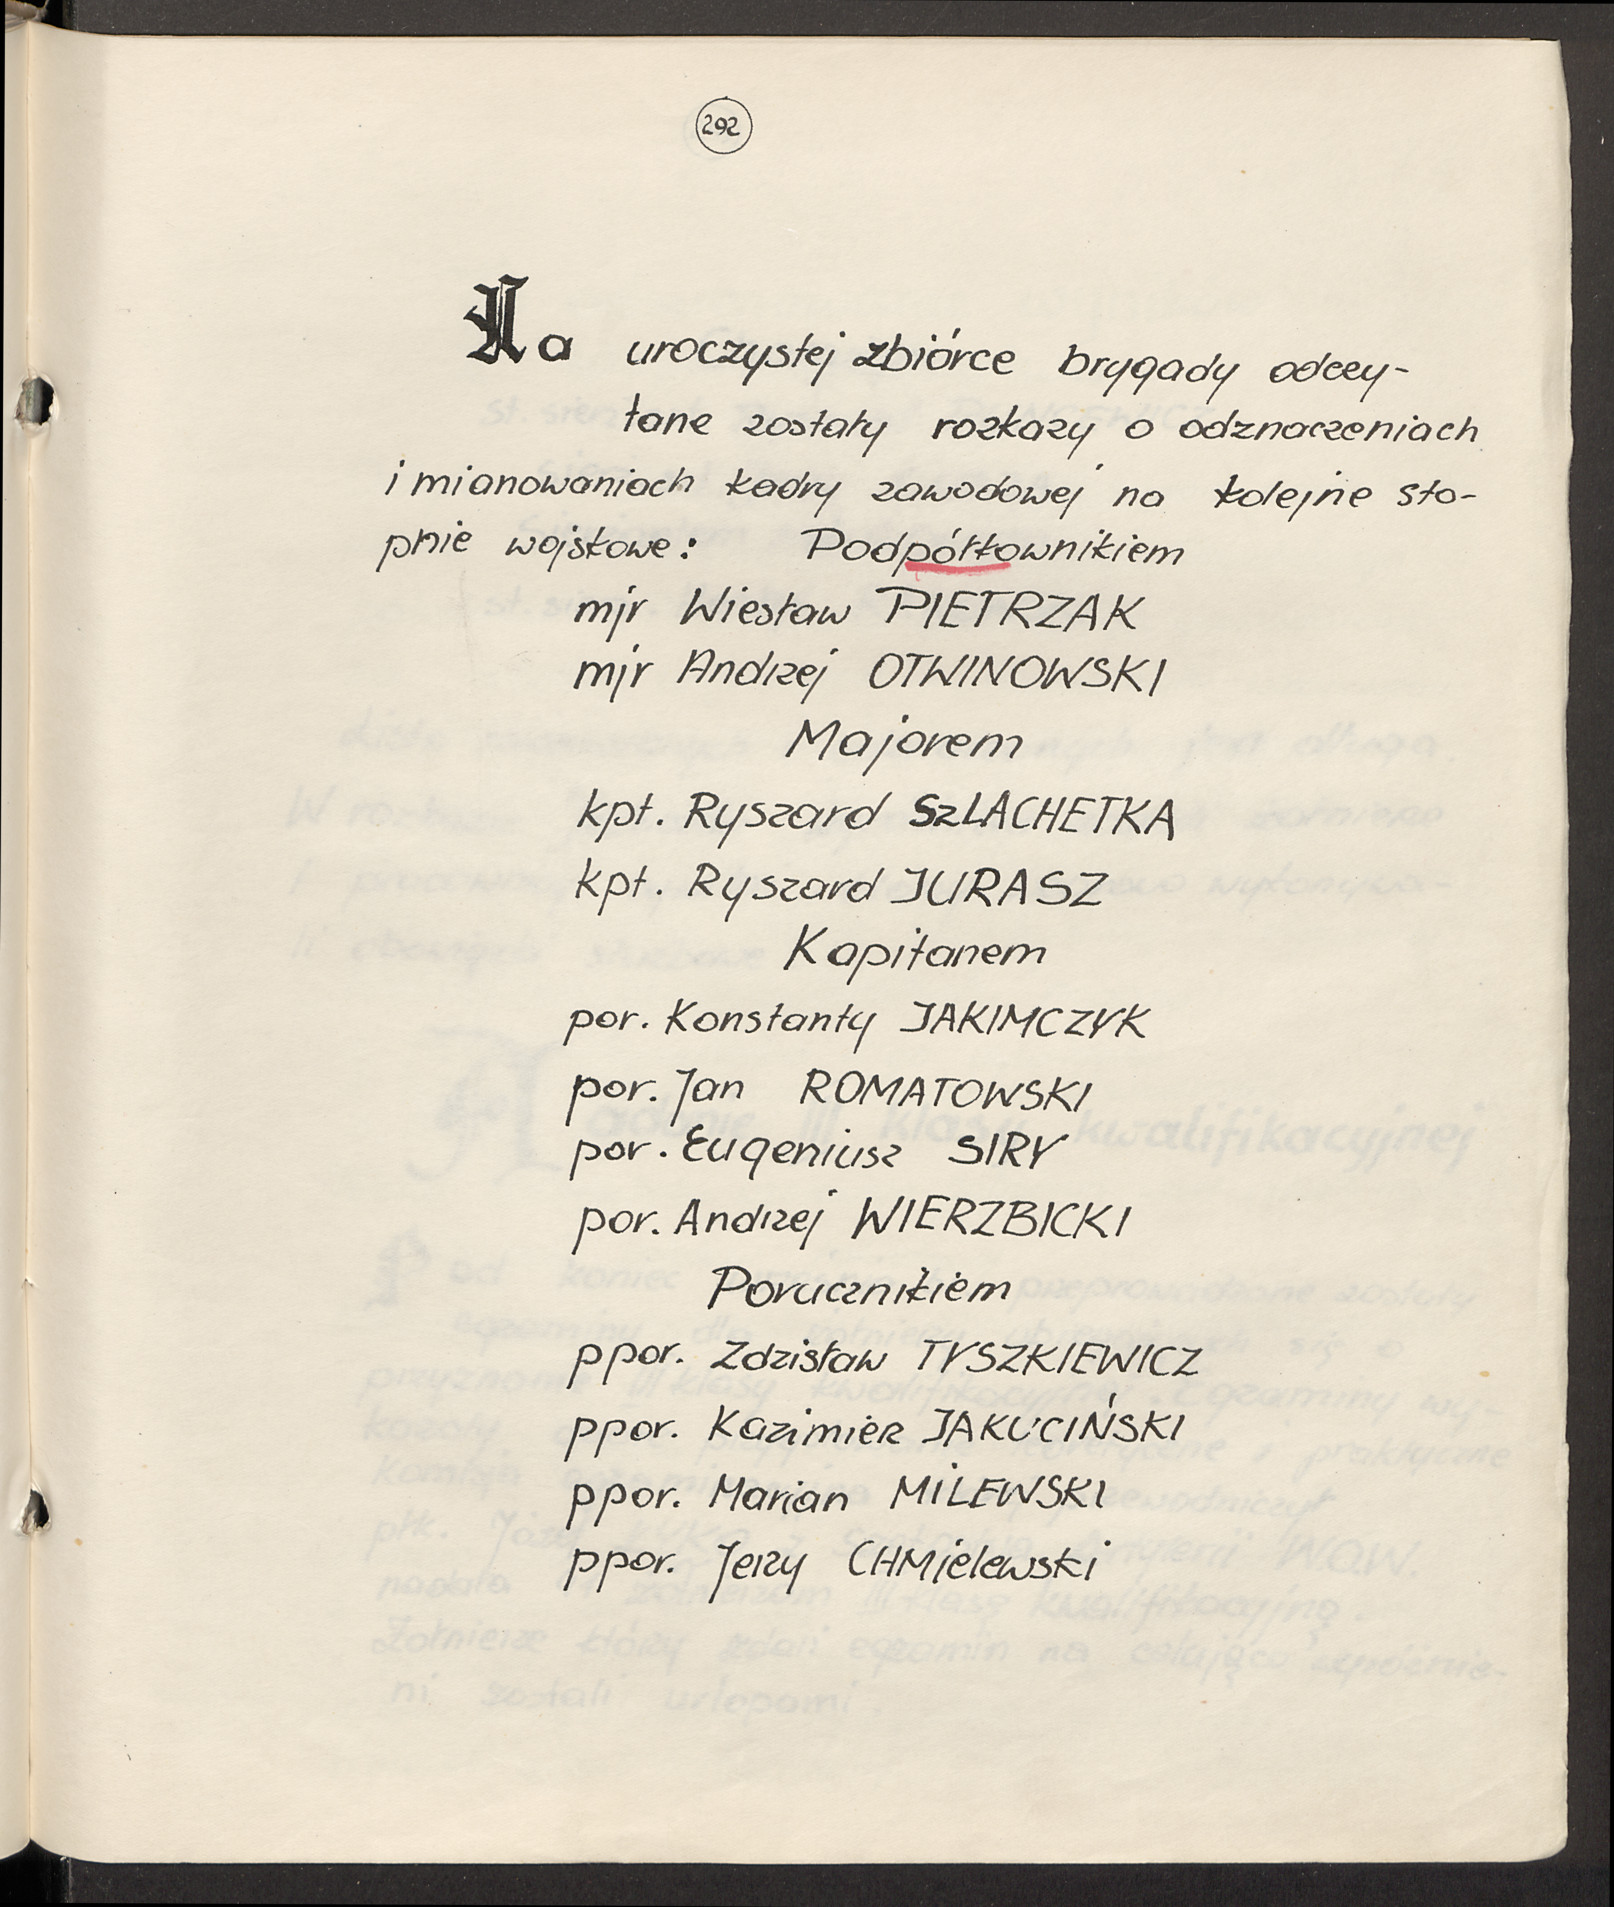 292
Na uroczystej zbiórce brygady odczy-
tane zostały rozkazy o odznaczeniach
i mianowaniach kadry zawodowej na kolejne sto-
pnie wojskowe: Podpółkownikiem
mjr Wiesław PIETRZAK
mjr Andrzej OTWINOWSKI
Majorem
kpt. Ryszard SzLACHETKA
kpt. Ryszard JURASZ
Kapitanem
por. Konstanty JAKIMCZYK
por. Jan ROMATOWSKI
por. Eugeniusz SIRY
por. Andrzej WIERZBICKI
Porucznikiem
ppor. Zdzisław TYSZKIEWICZ
ppor. Kazimierz JAKUCIŃSKI
ppor. Marian MILEWSKI
ppor. Jerzy CHMielewski